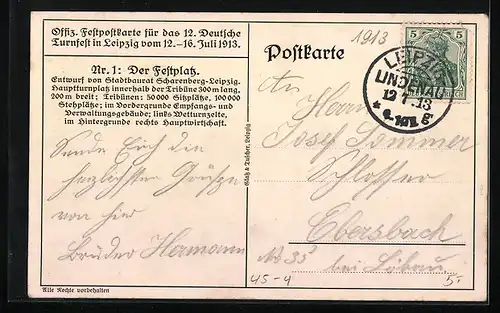 Offiz. Festpostkarte für das 12. Deutsche
Turnfest in Leipzig vom 12.-16. Juli 1913.
Nr. 1: Der Festplatz.
Entwurf von Stadtbaurat Scharenberg-Leipzig.
Hauptturnplatz innerhalb der Tribüne 300 m lang,
200 m breit; Tribünen: 30000 Sitzplätze, 100000
Stehplätze; im Vordergrunde Empfangs- und
Verwaltungsgebäude; links Wetturnzelte,
im Hintergrunde großes Hauptwirtschaft.
Sende Euch die
herzlichsten Grüße
von hier
Bruder Hermann
Alle Rechte vorbehalten
Glatz & Tuscher, Leipzig
Postkarte
1913
5 5
LEIPZIG
LINDENAU
12 7 13
An
Herrn
Josef Sommer
Schlosser
Ebersbach
No 35
bei Löbau
45-4
5.-